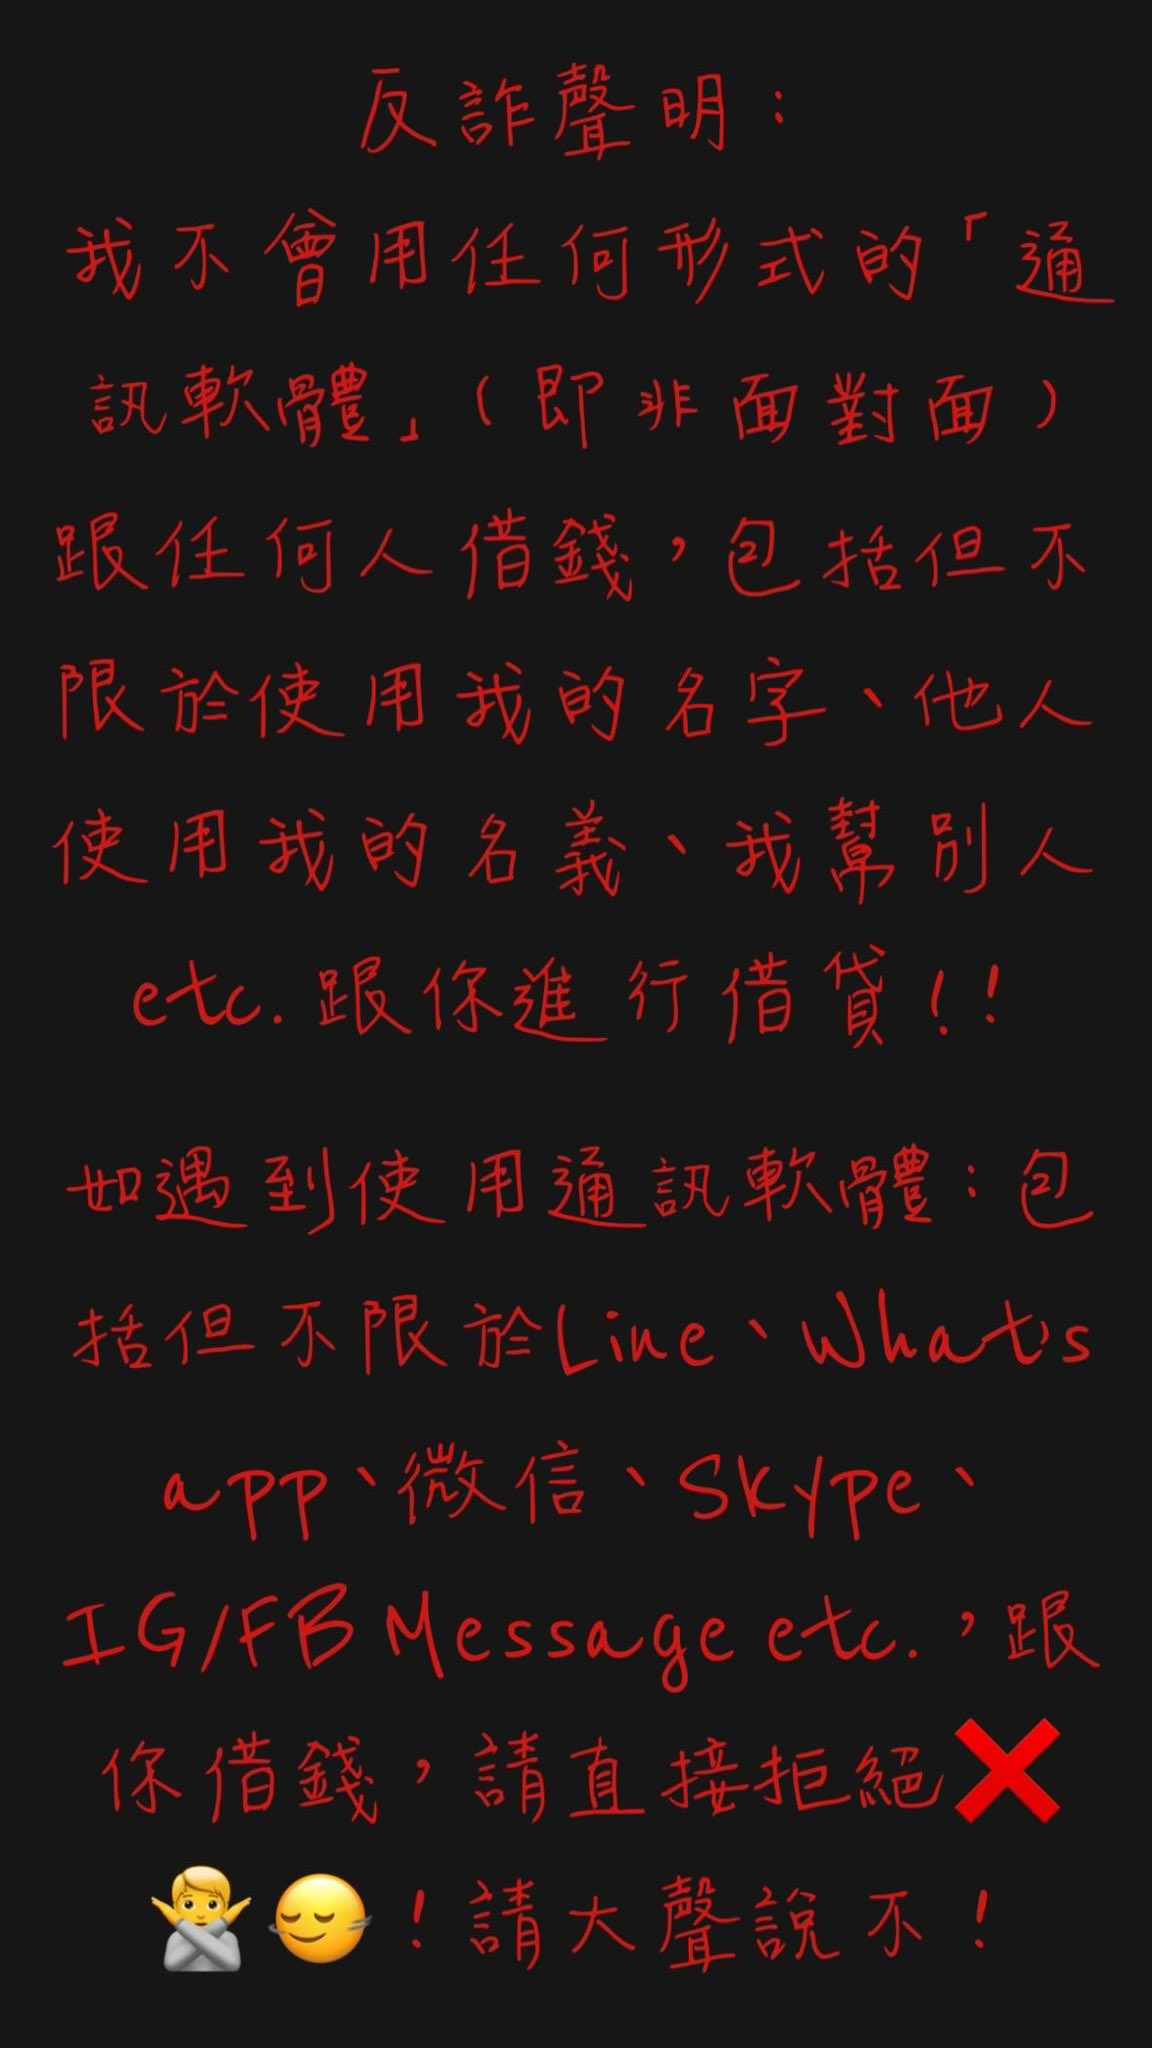 反詐聲明：
我不會用任何形式的「通
訊軟體」（即非面對面）
跟任何人借錢，包括但不
限於使用我的名字、他人
使用我的名義、我幫別人
etc. 跟你進行借貸！！
如遇到使用通訊軟體：包
括但不限於Line、What's
app、微信、Skype、
IG/FB Message etc.，跟
你借錢，請直接拒絕❌
🙅🙂‍↔️！請大聲說不！